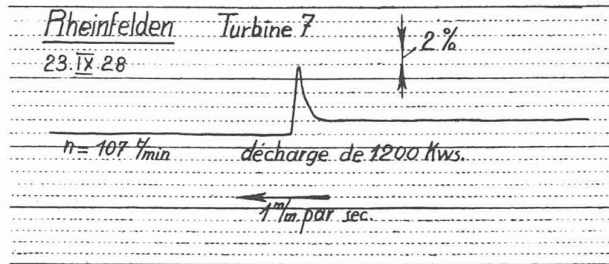 Rheinfelden Turbine 7
2%
23.IX.28
n = 107 t/min décharge de 1200 Kws.
1 m/m. par sec.